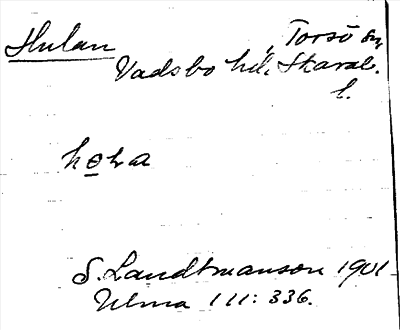 Hulan , Torsö sn,
Vadsbo hd, Skarab.
l.
S. Landtmanson 1901
Ulma 111: 336.